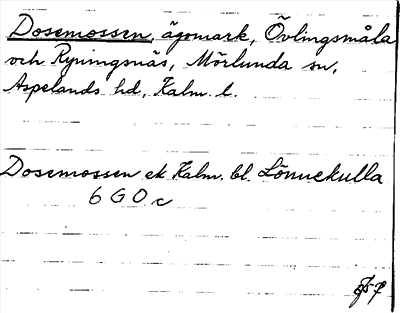 Dosemossen, ägomark, Övlingsmåla
och Ryningsnäs, Mörlunda sn,
Aspelands hd, Kalm. l.
Dosemossen ek Kalm. bl. Lönnekulla
6 G O c